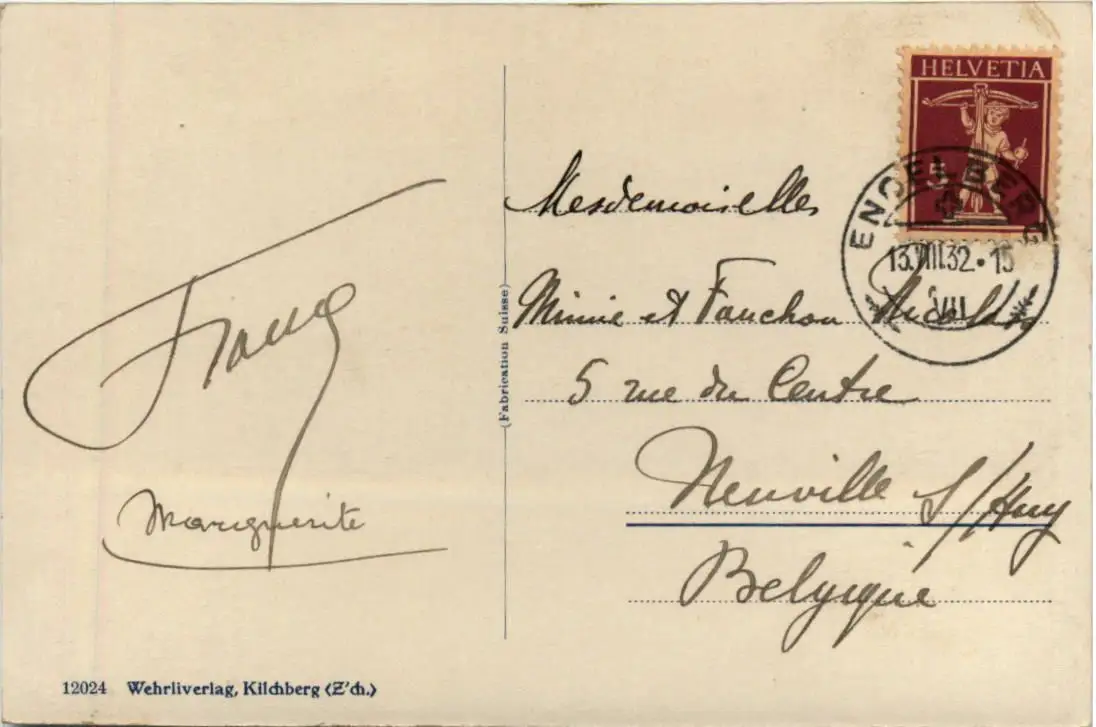 HELVETIA
ENGELBERG
13.VIII.32·15
VII
Mesdemoiselles
Minnie et Fanchon
5 rue du Centre
Neuville s/Huy
Belgique
Marguerite
(Fabrication Suisse)
12024 Wehrliverlag, Kilchberg (Z'ch.)